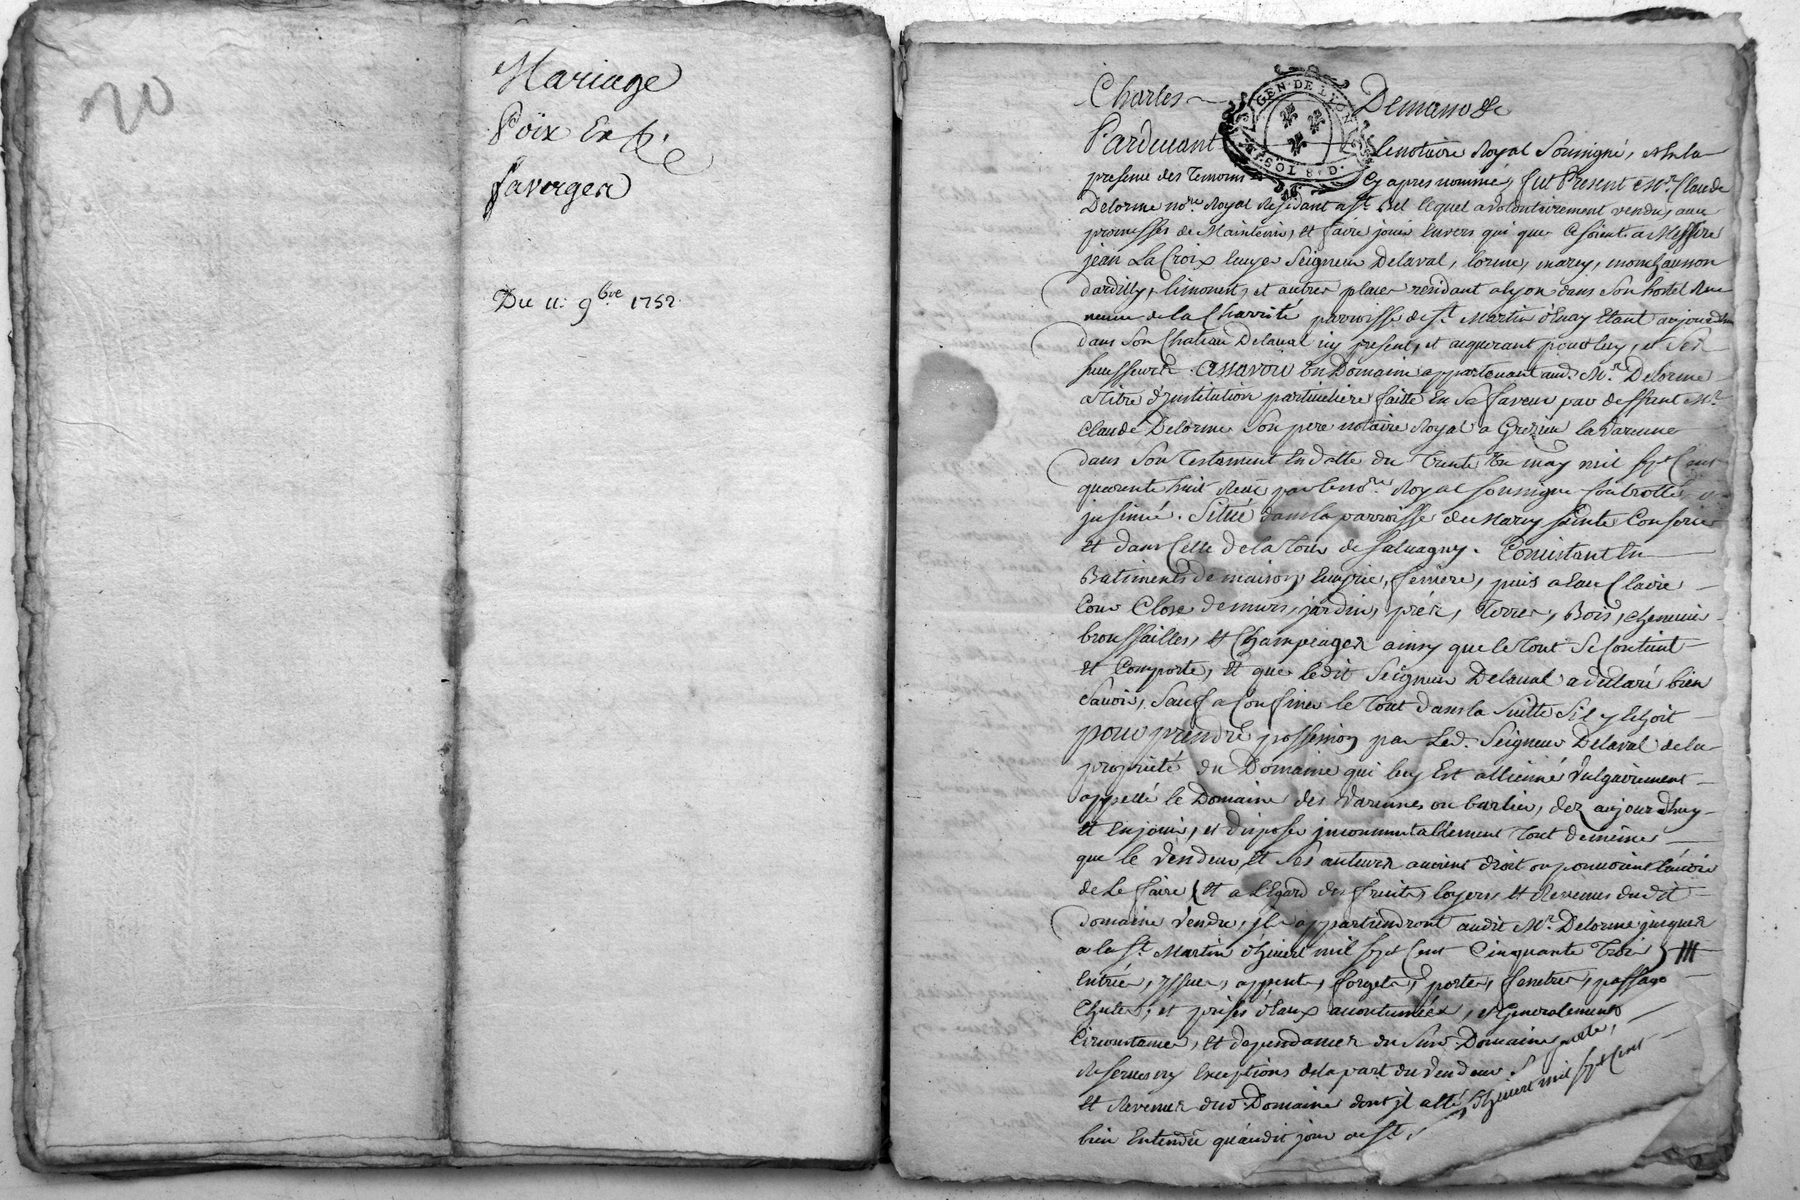 20
Mariage
Poix Et
faverger
Du 11. 9bre 1752
Charles Demanode
GEN. DE LYON
8. D.
Pardevant Le notaire Royal Soussigné, Et en la
presence des Temoins Cy apres nommés, fut Present Mr. Claude
Delorme nore. Royal Residant a St. Bel lequel a volontairement vendu, aux
promesses de Maintenir, et faire jouir Envers qui que Ce soient a Messire
jean La Croix Ecuyer Seigneur Delaval,
Dardilly, limonest, et autres places residant a lyon dans Son hostel Rue
de la Charité parroisse de St. Martin d'Enay Etant aujourdhuy
dans Son Chateau Delaval icy present, et aquerant pour luy, et Ses
successeurs. assavoir Un Domaine appartenant aud. Mr. Delorme
a titre d'institution particuliere faitte En Sa faveur par deffunt Mr.
Claude Delorme Son pere notaire Royal a Grezieu la varenne
dans Son Testament En datte du Trente Un may mil Sept Cent
quarente huit Recu par le nore. Royal soussigné Controllé, et
jnsinué. Situé dans la parroisse de Marcy Sainte Consorce
et dans Celle de la Tour de Salvagny. Consistant En
Batiments de maison, Ecuyrie, feniere, puis a Eau Claire
Cour Close de murs, jardin, prés, Terres, Bois, chemins
broussailles, et Champeages ainsy que le tout Se Contient
et Comporte, et que ledit Seigneur Delaval a declaré bien
Savoir, Sauf a Confiner le Tout dans la Suitte Sil y Echoit
pour prendre possession par Led. Seigneur Delaval de la
propriété du Domaine qui luy Est allienné Vulgairement
appellé le Domaine des Varennes ou barlieu, dez aujourdhuy
et En jouir, et disposer jncommutablement Tout de meme
que le Vendeur, et Ses auteurs avoient droit ou pouvoient avoir
de le faire Et a L'Egard des fruits, loyers, et Revenus du dit
Domaine Vendu, jls appartiendront audit Mr. Delorme jusques
a la St. Martin d'hivert mil Sept Cent Cinquante Trois
Entrée, yssue, appents, forgets, portes, fenetres, passage
Chutes, et prises d'Eaux accoutumées, et Generalement
Circonstances, et dependances du Susd. Domaine
Reserves ny Exceptions de la part du Vendeur
et Revenus dud. Domaine dont jl d'hivert mil Sept Cent
bien Entendu qu'audit jour de St.